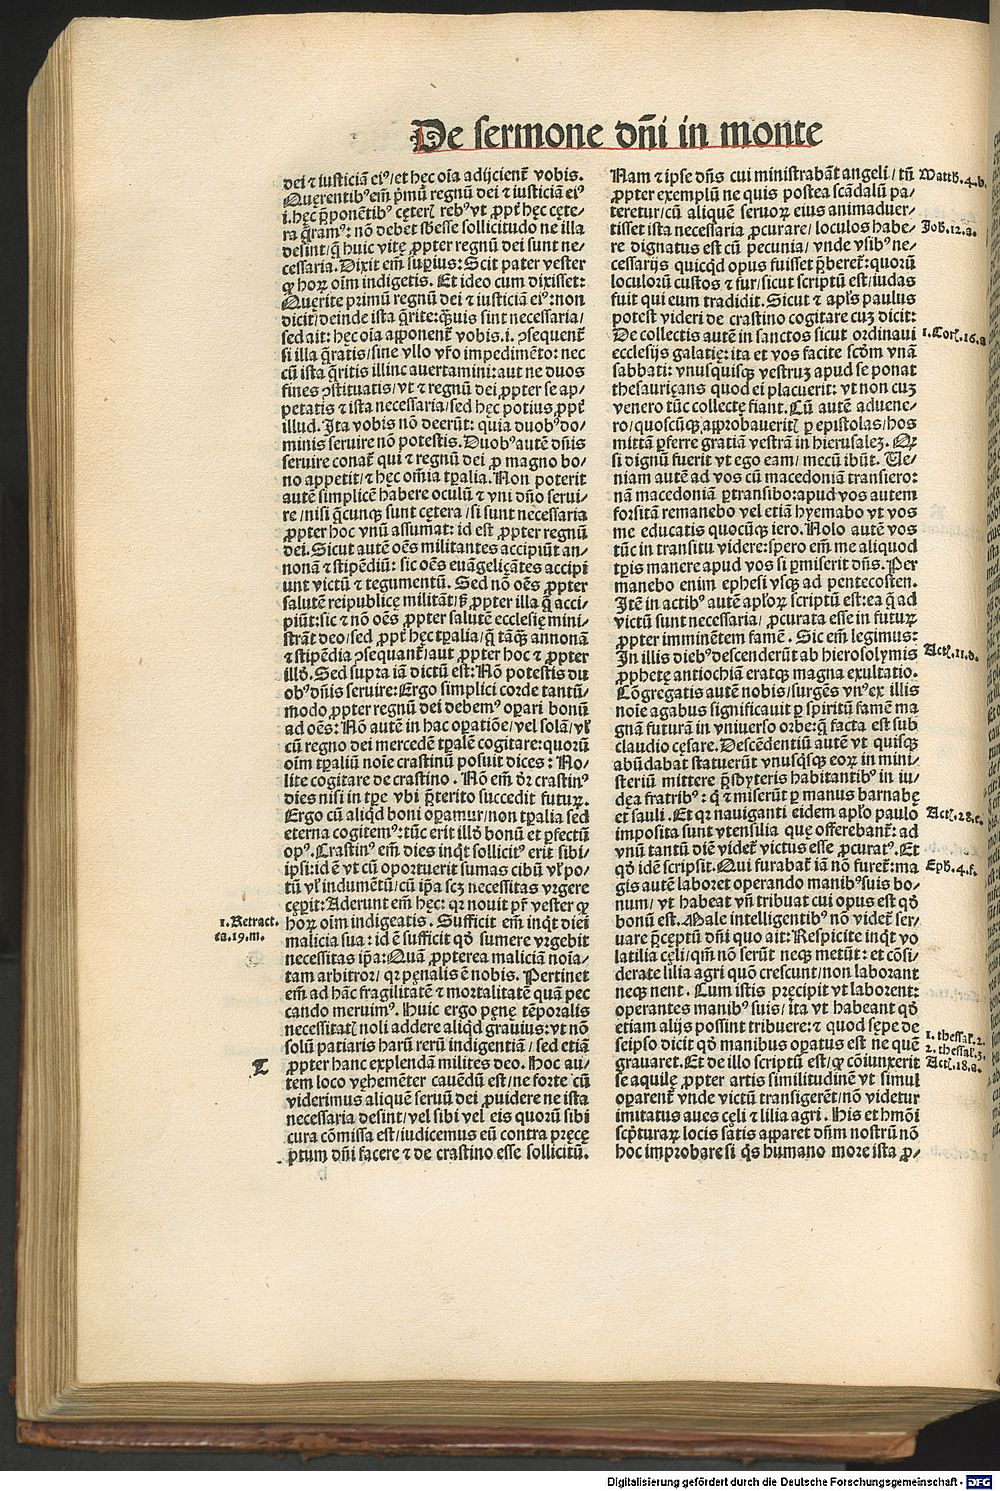 De sermone dñi in monte
dei ⁊ iusticiã eiꝰ/et hec oĩa adijcient᷑ vobis.
Quęrentibꝰ em̃ p̃mũ regnũ dei ⁊ iusticiã eiꝰ
.i. hęc p̃ponẽtibꝰ cęteris rebꝰ vt ꝓpter hęc cęte-
ra q̃ramꝰ: nõ debet sbesse sollicitudo ne illa
desint/q̃ huic vitę ꝓpter regnũ dei sunt ne-
cessaria. Dixit em̃ suꝑius: Scit pater vester
ꝙ horꝝ oĩm indigetis. Et ideo cum dixisset:
Quęrite primũ regnũ dei ⁊ iusticiã eiꝰ: non
dicit/deinde ista q̃rite: q̃uis sint necessaria/
sed ait: hęc oĩa apponent᷑ vobis .i. ꝯsequent᷑
si illa q̃ratis/sine vllo vr̃o impedimẽto: nec
cũ ista q̃ritis illinc auertamini: aut ne duos
fines ꝯstituatis/vt ⁊ regnũ dei ꝓpter se ap-
petatis ⁊ ista necessaria/sed hęc potius ꝓpt᷑
illud. Ita vobis nõ deerũt: quia duobꝰ do-
minis seruire nõ potestis. Duobꝰ autẽ dñis
seruire conat᷑ qui ⁊ regnũ dei ꝓ magno bo-
no appetit/⁊ hęc om̃ia tp̃alia. Non poterit
autẽ simplicẽ habere oculũ ⁊ vni dño serui-
re/nisi q̃cunqꝫ sunt cętera/si sunt necessaria
ꝓpter hoc vnũ assumat: id est ꝓpter regnũ
dei. Sicut autẽ oẽs militantes accipiũt an-
nonã ⁊ stipẽdiũ: sic oẽs euãgeliçãtes accipi
unt victũ ⁊ tegumentũ. Sed nõ oẽs ꝓpter
salutẽ reipublicę militãt/sꝫ ꝓpter illa q̃ acci-
piũt: sic ⁊ nõ oẽs ꝓpter salutẽ ecclesię mini-
strãt deo/sed ꝓpt᷑ hęc tp̃alia/q̃ tãqꝫ annonã
⁊ stipẽdia ꝯsequant᷑/aut ꝓpter hoc ⁊ ꝓpter
illd̃. Sed supra iã dictũ est: Nõ potestis du
obꝰ dñis seruire: Ergo simplici corde tantũ-
modo ꝓpter regnũ dei debemꝰ oꝑari bonũ
ad oẽs: Nõ autẽ in hac oꝑatiõe/vel solã/vl̃
cũ regno dei mercedẽ tp̃alẽ cogitare: quorũ
oĩm tp̃aliũ noĩe crastinũ posuit dicẽs: No-
lite cogitare de crastino. Nõ em̃ dr̃ crastinꝰ
dies nisi in tp̃e vbi p̃terito succedit futurꝝ.
Ergo cũ aliqd̃ boni oꝑamur/non tp̃alia sed
eterna cogitemꝰ: tũc erit illd̃ bonũ et ꝑfectũ
opꝰ. Crastinꝰ em̃ dies inqt̃ sollicitꝰ erit sibi-
ipsi: id ẽ vt cũ oportuerit sumas cibũ vl̃ po-
tũ vl̃ indumẽtũ/cũ ip̃a scꝫ necessitas vrgere
cęꝑit: Aderunt em̃ hęc: qꝛ nouit pr̃ vester ꝙ
horꝝ oĩm indigeatis. Sufficit em̃ inqt̃ diei
malicia sua: id ẽ sufficit qd̃ sumere vrgebit
necessitas ip̃a: Quã ꝓpterea maliciã noĩa-
tam arbitror/qꝛ pęnalis ẽ nobis. Pertinet
em̃ ad hãc fragilitatẽ ⁊ mortalitatẽ quã pec
cando meruimꝰ. Huic ergo pęnę tẽporalis
necessitatis noli addere aliqd̃ grauius: vt nõ
solũ patiaris harũ rerũ indigentiã/sed etiã
ꝓpter hanc explendã milites deo. Hoc au-
tem loco vęhemẽter cauẽdũ est/ne forte cũ
viderimus aliquẽ seruũ dei ꝓuidere ne ista
necessaria desint/vel sibi vel eis quorũ sibi
cura cõmissa est/iudicemus eũ contra pręcę
ptum dñi facere ⁊ de crastino esse sollicitũ.
1. Retract.
ca. 19. m.
T
Nam ⁊ ipse dñs cui ministrabãt angeli/tñ
ꝓpter exemplũ ne quis postea scãdalũ pa-
teretur/cũ aliquẽ seruorꝝ eius animaduer-
tisset ista necessaria ꝓcurare/loculos habe-
re dignatus est cũ pecunia/vnde vsibꝰ ne-
cessarijs quicqd̃ opus fuisset p̃beret᷑: quorũ
loculorũ custos ⁊ fur/sicut scriptũ est/iudas
fuit qui eum tradidit. Sicut ⁊ apl̃s paulus
potest videri de crastino cogitare cuꝫ dicit:
De collectis autẽ in sanctos sicut ordinaui
ecclesijs galatię: ita et vos facite scd̃m vnã
sabbati: vnusquisqꝫ vestruꝫ apud se ponat
thesauriçans quod ei placuerit: vt non cuꝫ
venero tũc collectę fiant. Cũ autẽ aduene-
ro/quoscũqꝫ approbaueritis ꝑ epistolas/hos
mittã ꝑferre gratiã vestrã in hierusaleꝫ. Qꝛ
si dignũ fuerit vt ego eam/mecũ ibũt. Ue-
niam autẽ ad vos cũ macedoniã transiero:
nã macedoniã ꝑtransibo: apud vos autem
forsitã remanebo vel etiã hyemabo vt vos
me educatis quocũqꝫ iero. Nolo autẽ vos
tũc in transitu videre: spero em̃ me aliquod
tp̃is manere apud vos si ꝑmiserit dñs. Per
manebo enim ephesi vsqꝫ ad pentecosten.
Itẽ in actibꝰ autẽ apl̃orꝝ scriptũ est: ea q̃ ad
victũ sunt necessaria/ꝓcurata esse in futurꝝ
ꝓpter imminẽtem famẽ. Sic em̃ legimus:
In illis diebꝰ descenderũt ab hierosolymis
ꝓphetę antiochiã eratqꝫ magna exultatio.
Cõgregatis autẽ nobis/surgẽs vnꝰ ex illis
noĩe agabus significauit ꝑ spiritũ famẽ ma
gnã futurã in vniuerso orbe: q̃ facta est sub
claudio cęsare. Descẽdentiũ autẽ vt quisqꝫ
abũdabat statuerũt vnusqͥsqꝫ eorꝝ in mini-
steriũ mittere p̃sbyteris habitantibꝰ in iu-
dęa fratribꝰ: q̃ ⁊ miserũt ꝑ manus barnabę
et sauli. Et qꝛ nauiganti eidem apl̃o paulo
imposita sunt vtensilia quę offerebant᷑: ad
vnũ tantũ diẽ videt᷑ victus esse ꝓcuratꝰ. Et
qd̃ idẽ scripsit. Qui furabat᷑ iã nõ furet᷑: ma
gis autẽ laboret operando manibꝰ suis bo-
num/vt habeat vñ tribuat cui opus est qd̃
bonũ est. Male intelligentibꝰ nõ videt᷑ ser-
uare p̃ceptũ dñi quo ait: Respicite inqt̃ vo
latilia cęli/qm̃ nõ serũt neqꝫ metũt: et cõsi-
derate lilia agri quõ crescunt/non laborant
neqꝫ nent. Cum istis pręcipit vt laborent:
operantes manibꝰ suis/ita vt habeant qd̃
etiam alijs possint tribuere: ⁊ quod sępe de
seipso dicit qd̃ manibus oꝑatus est ne quẽ
grauaret. Et de illo scriptũ est/ꝙ cõiunxerit
se aquilę ꝓpter artis similitudinẽ vt simul
oꝑarent᷑ vnde victũ transigerẽt/nõ videtur
imitatus aues cęli ⁊ lilia agri. His et hm̃õi
scp̃turarꝝ locis satis apparet dñm nostrũ nõ
hoc improbare si qͥs humano more ista ꝓ-
Matth. 4. b.
Joh. 12. a.
1. Corͥ. 16. a
Actꝭ. 11. d.
Actꝭ. 28. c.
Eph. 4. f.
1. thessal. 2.
2. thessal. 3.
Actꝭ. 18. a.
Digitalisierung gefördert durch die Deutsche Forschungsgemeinschaft - DFG